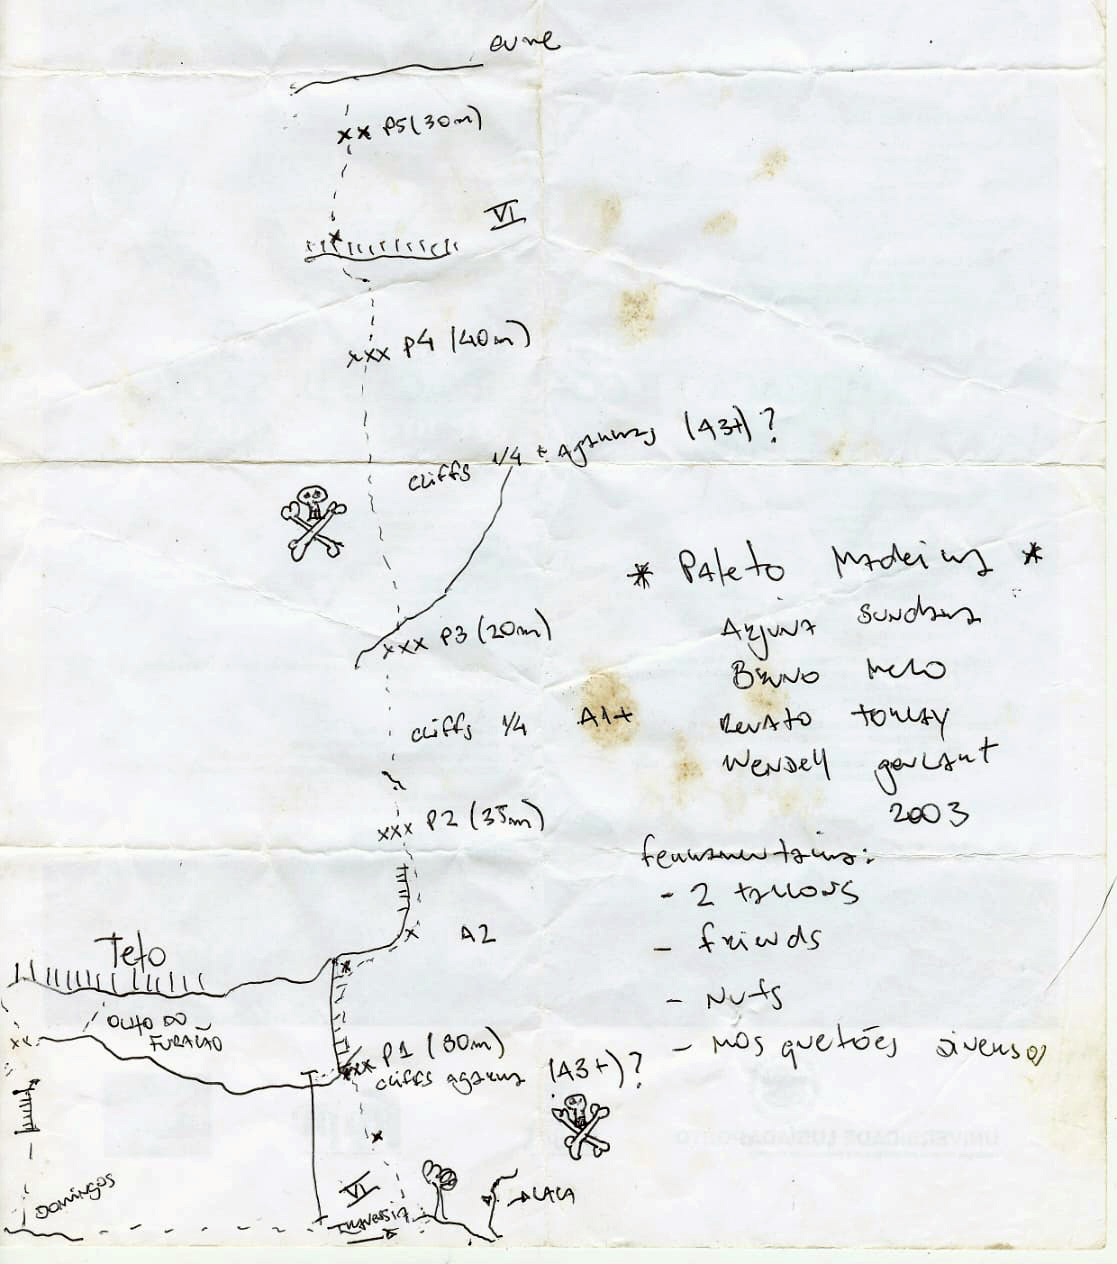 cume
xx P5 (30m)
VI
xxx P4 (40m)
cliffs 1/4 + agarras (A3+)?
* Paleto Madeira *
Arjuna Sundara
Bruno Melo
Renato
Wendell
2003
xxx P3 (20m)
cliffs 1/4 A1+
xxx P2 (35m)
ferramentaria:
- 2 tallons
- friends
- Nuts
- mosquetões diversos
A2
Teto
OLHO DO
FURACÃO
xxx P1 (30m)
cliffs agarra (A3+)?
VI
Travessia
DOMINGOS
LACA
UNIVERSIDADE LUSÍADA PORTO